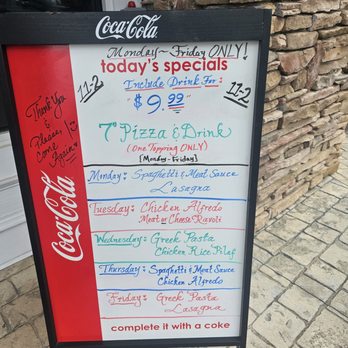 Coca-Cola
Monday~Friday ONLY!
today's specials
11-2
Include Drink For:
11-2
"$9.99"
Thank You
&
Please,
Come
Again
7" Pizza & Drink
(One Topping ONLY)
[Monday-Friday]
Monday: Spaghetti & Meat Sauce
Lasagna
Tuesday: Chicken Alfredo
Meat or Cheese Ravoli
Wednesday: Greek Pasta
Chicken Rice Pilaf
Thursday: Spaghetti & Meat Sauce
Chicken Alfredo
Friday: Greek Pasta
Lasagna
Coca-Cola
complete it with a coke